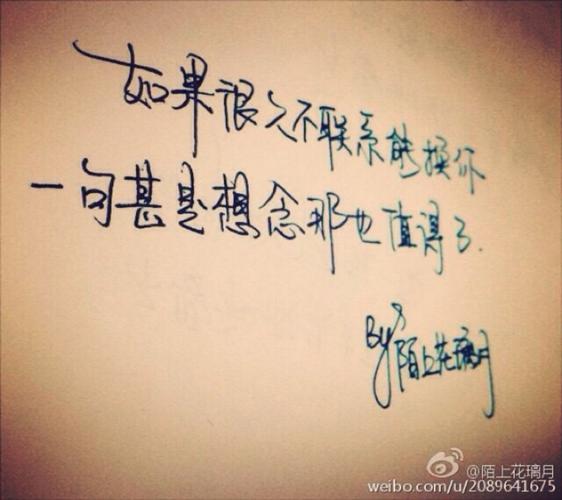 如果很久不联系能换你
一句甚是想念那也值得了.
By 陌上花璃月
@陌上花璃月
weibo.com/u/2089641675